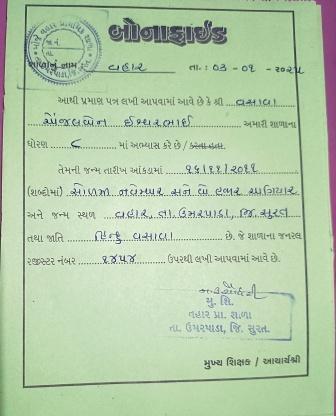 બોનાફાઈડ
શાળાનું નામ વહાર તા. : ૦૩-૦૧-૨૦૨૫
આથી પ્રમાણ પત્ર લખી આપવામાં આવે છે કે શ્રી વસાવા
ઈશ્વરભાઈ અમારી શાળાના
ધોરણ ૮ માં અભ્યાસ કરે છે / કરતા હતા.
તેમની જન્મ તારીખ આંકડામાં ૧૬/૧૧/૨૦૧૧
(શબ્દોમાં) સોળમી નવેમ્બર સને બે હજાર અગિયાર
અને જન્મ સ્થળ વહાર, તા. ઉમરપાડા, જિ. સુરત
તથા જાતિ હિન્દુ વસાવા છે. જે શાળાના જનરલ
રજીસ્ટર નંબર ૧૪૫૪ ઉપરથી લખી આપવામાં આવે છે.
મુ. શિ.
વહાર પ્રા. શાળા
તા. ઉમરપાડા, જિ. સુરત.
મુખ્ય શિક્ષક / આચાર્યશ્રી